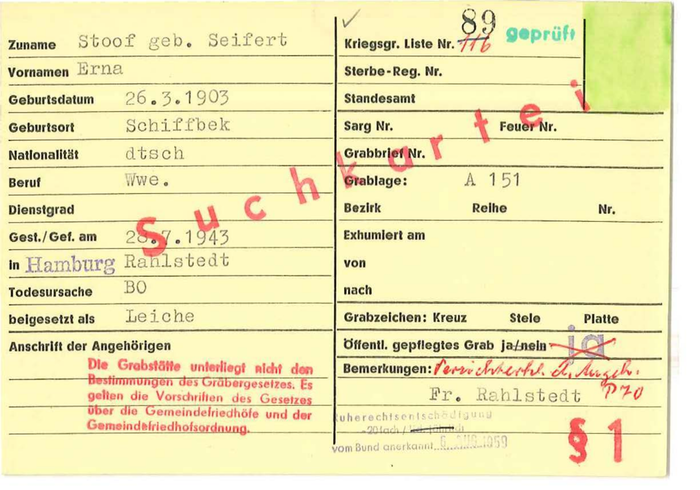 Zuname Stoof geb. Seifert
Vornamen Erna
Geburtsdatum 26.3.1903
Geburtsort Schiffbek
Nationalität dtsch
Beruf Wwe.
Dienstgrad
Gest./Gef. am 28.7.1943
in Hamburg Rahlstedt
Todesursache BO
beigesetzt als Leiche
Anschrift der Angehörigen
Die Grabstätte unterliegt nicht den
Bestimmungen des Gräbergesetzes. Es
gelten die Vorschriften des Gesetzes
über die Gemeindefriedhöfe und der
Gemeindefriedhofsordnung.
Suchkartei
89 geprüft
Kriegsgr. Liste Nr. 116
Sterbe-Reg. Nr.
Standesamt
Sarg Nr. Feuer Nr.
Grabbrief Nr.
Grablage: A 151
Bezirk Reihe Nr.
Exhumiert am
von
nach
Grabzeichen: Kreuz Stele Platte
Öffentl. gepflegtes Grab ja/nein ja
Bemerkungen: Verzichterkl. d. Angeh.
Fr. Rahlstedt P70
Ruherechtsentschädigung
-20fach /
vom Bund anerkannt 1959
§ 1